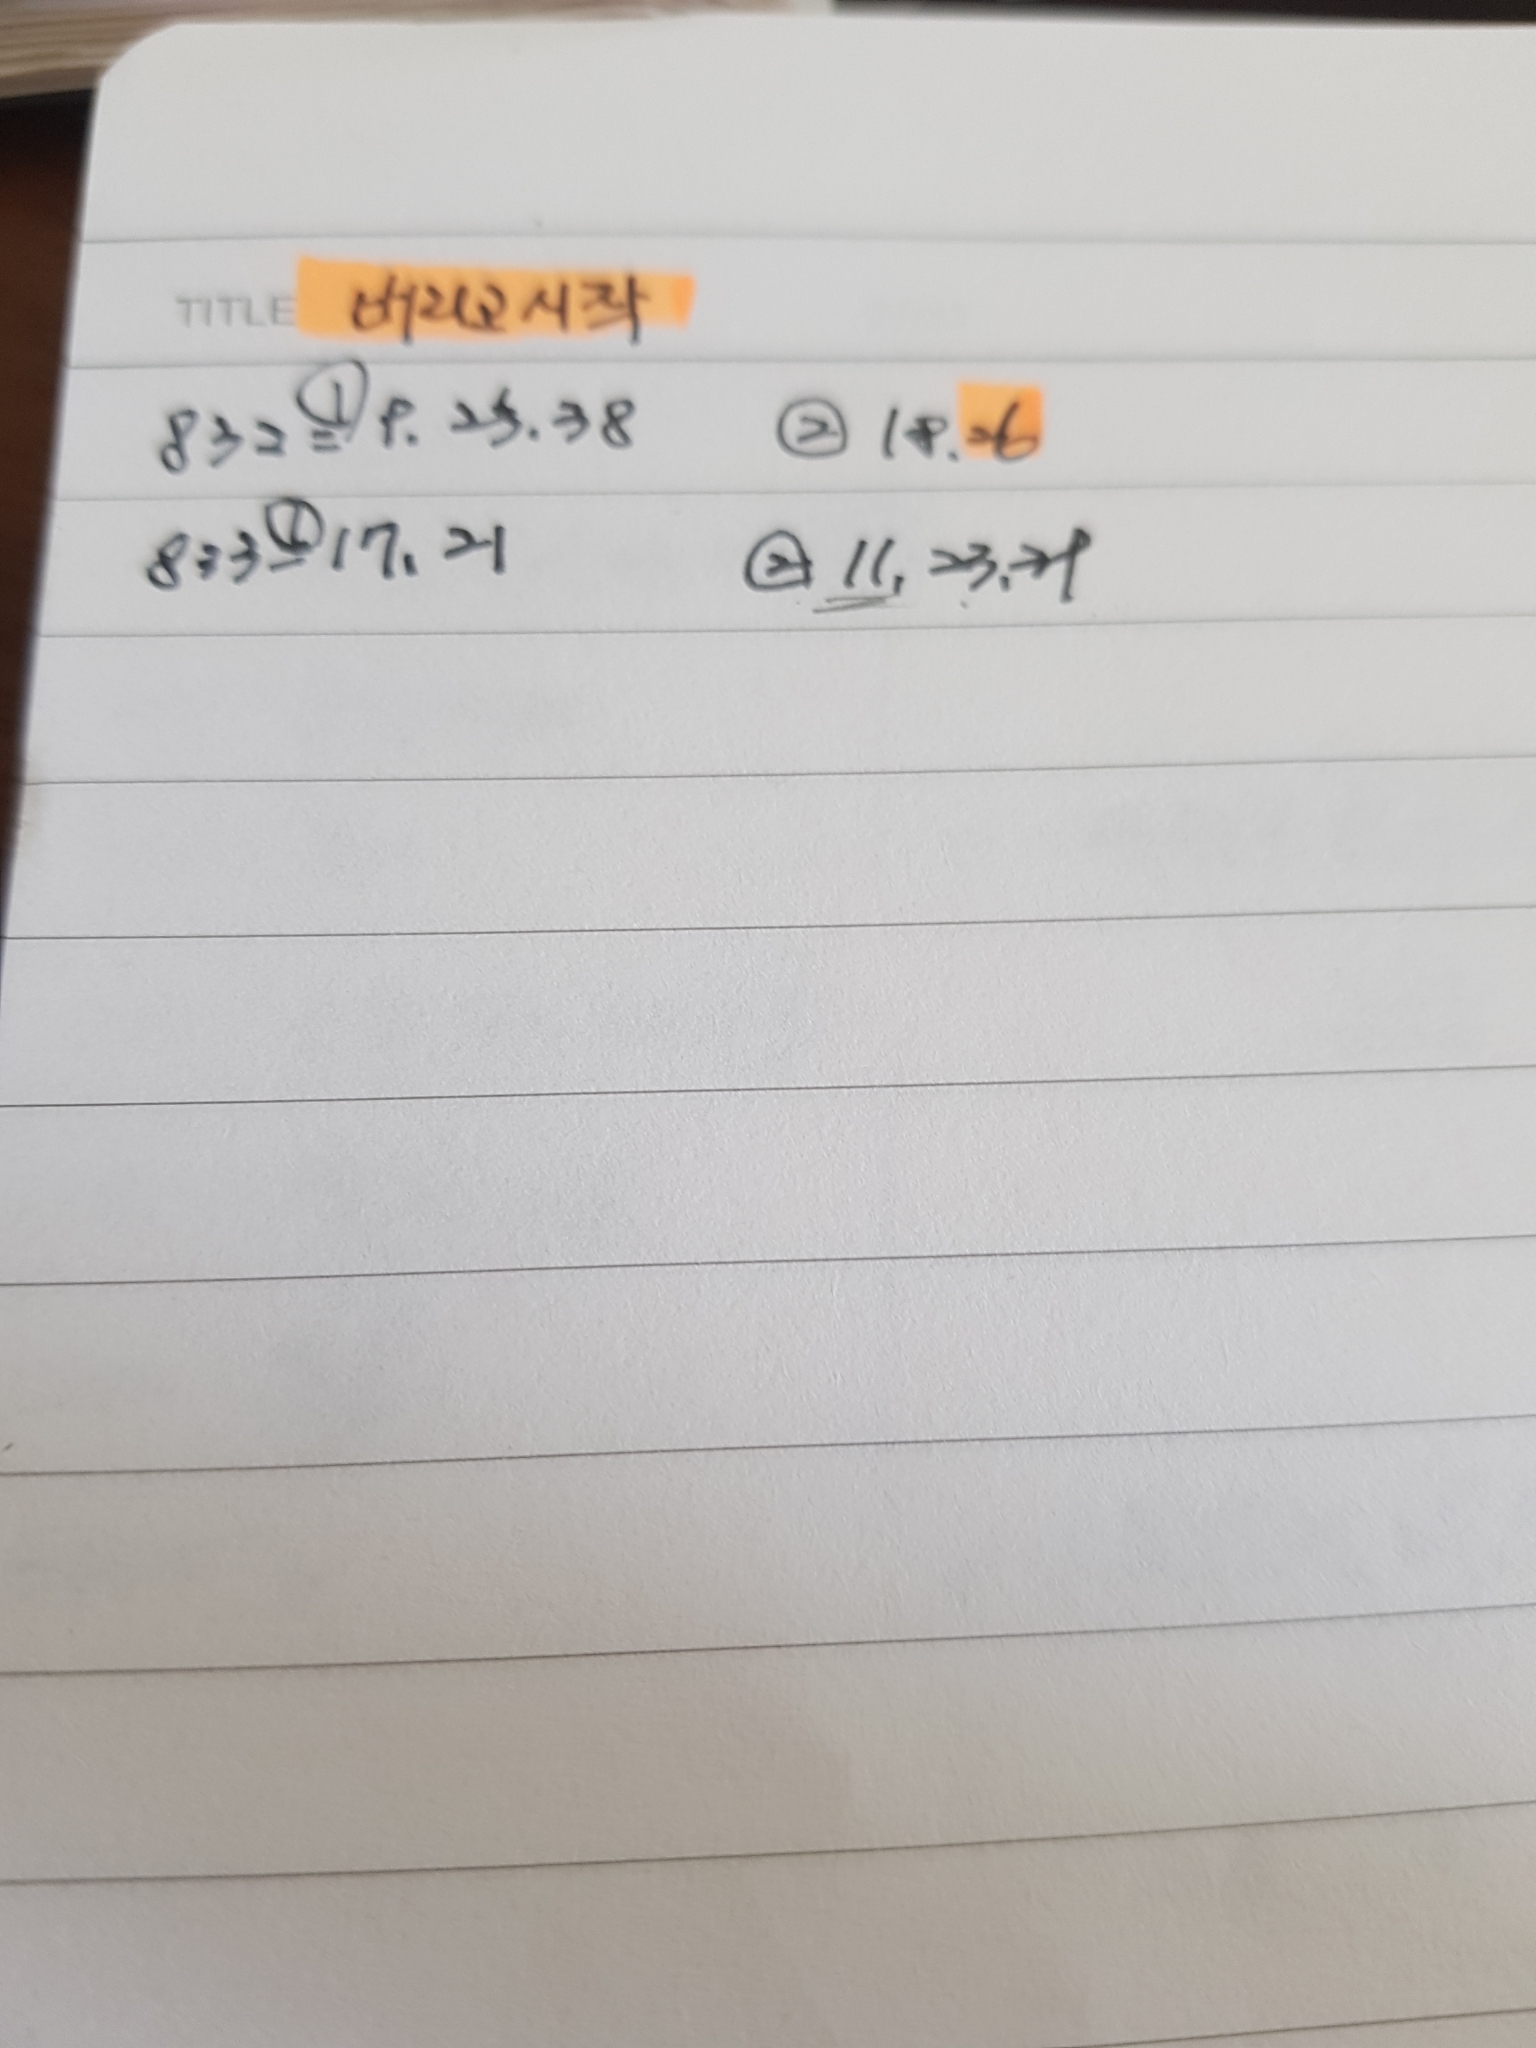 TITLE 버리고 시작
832 ① 8. 25. 38 ② 18. 26
833 ① 17, 21 ② 11, 23, 29